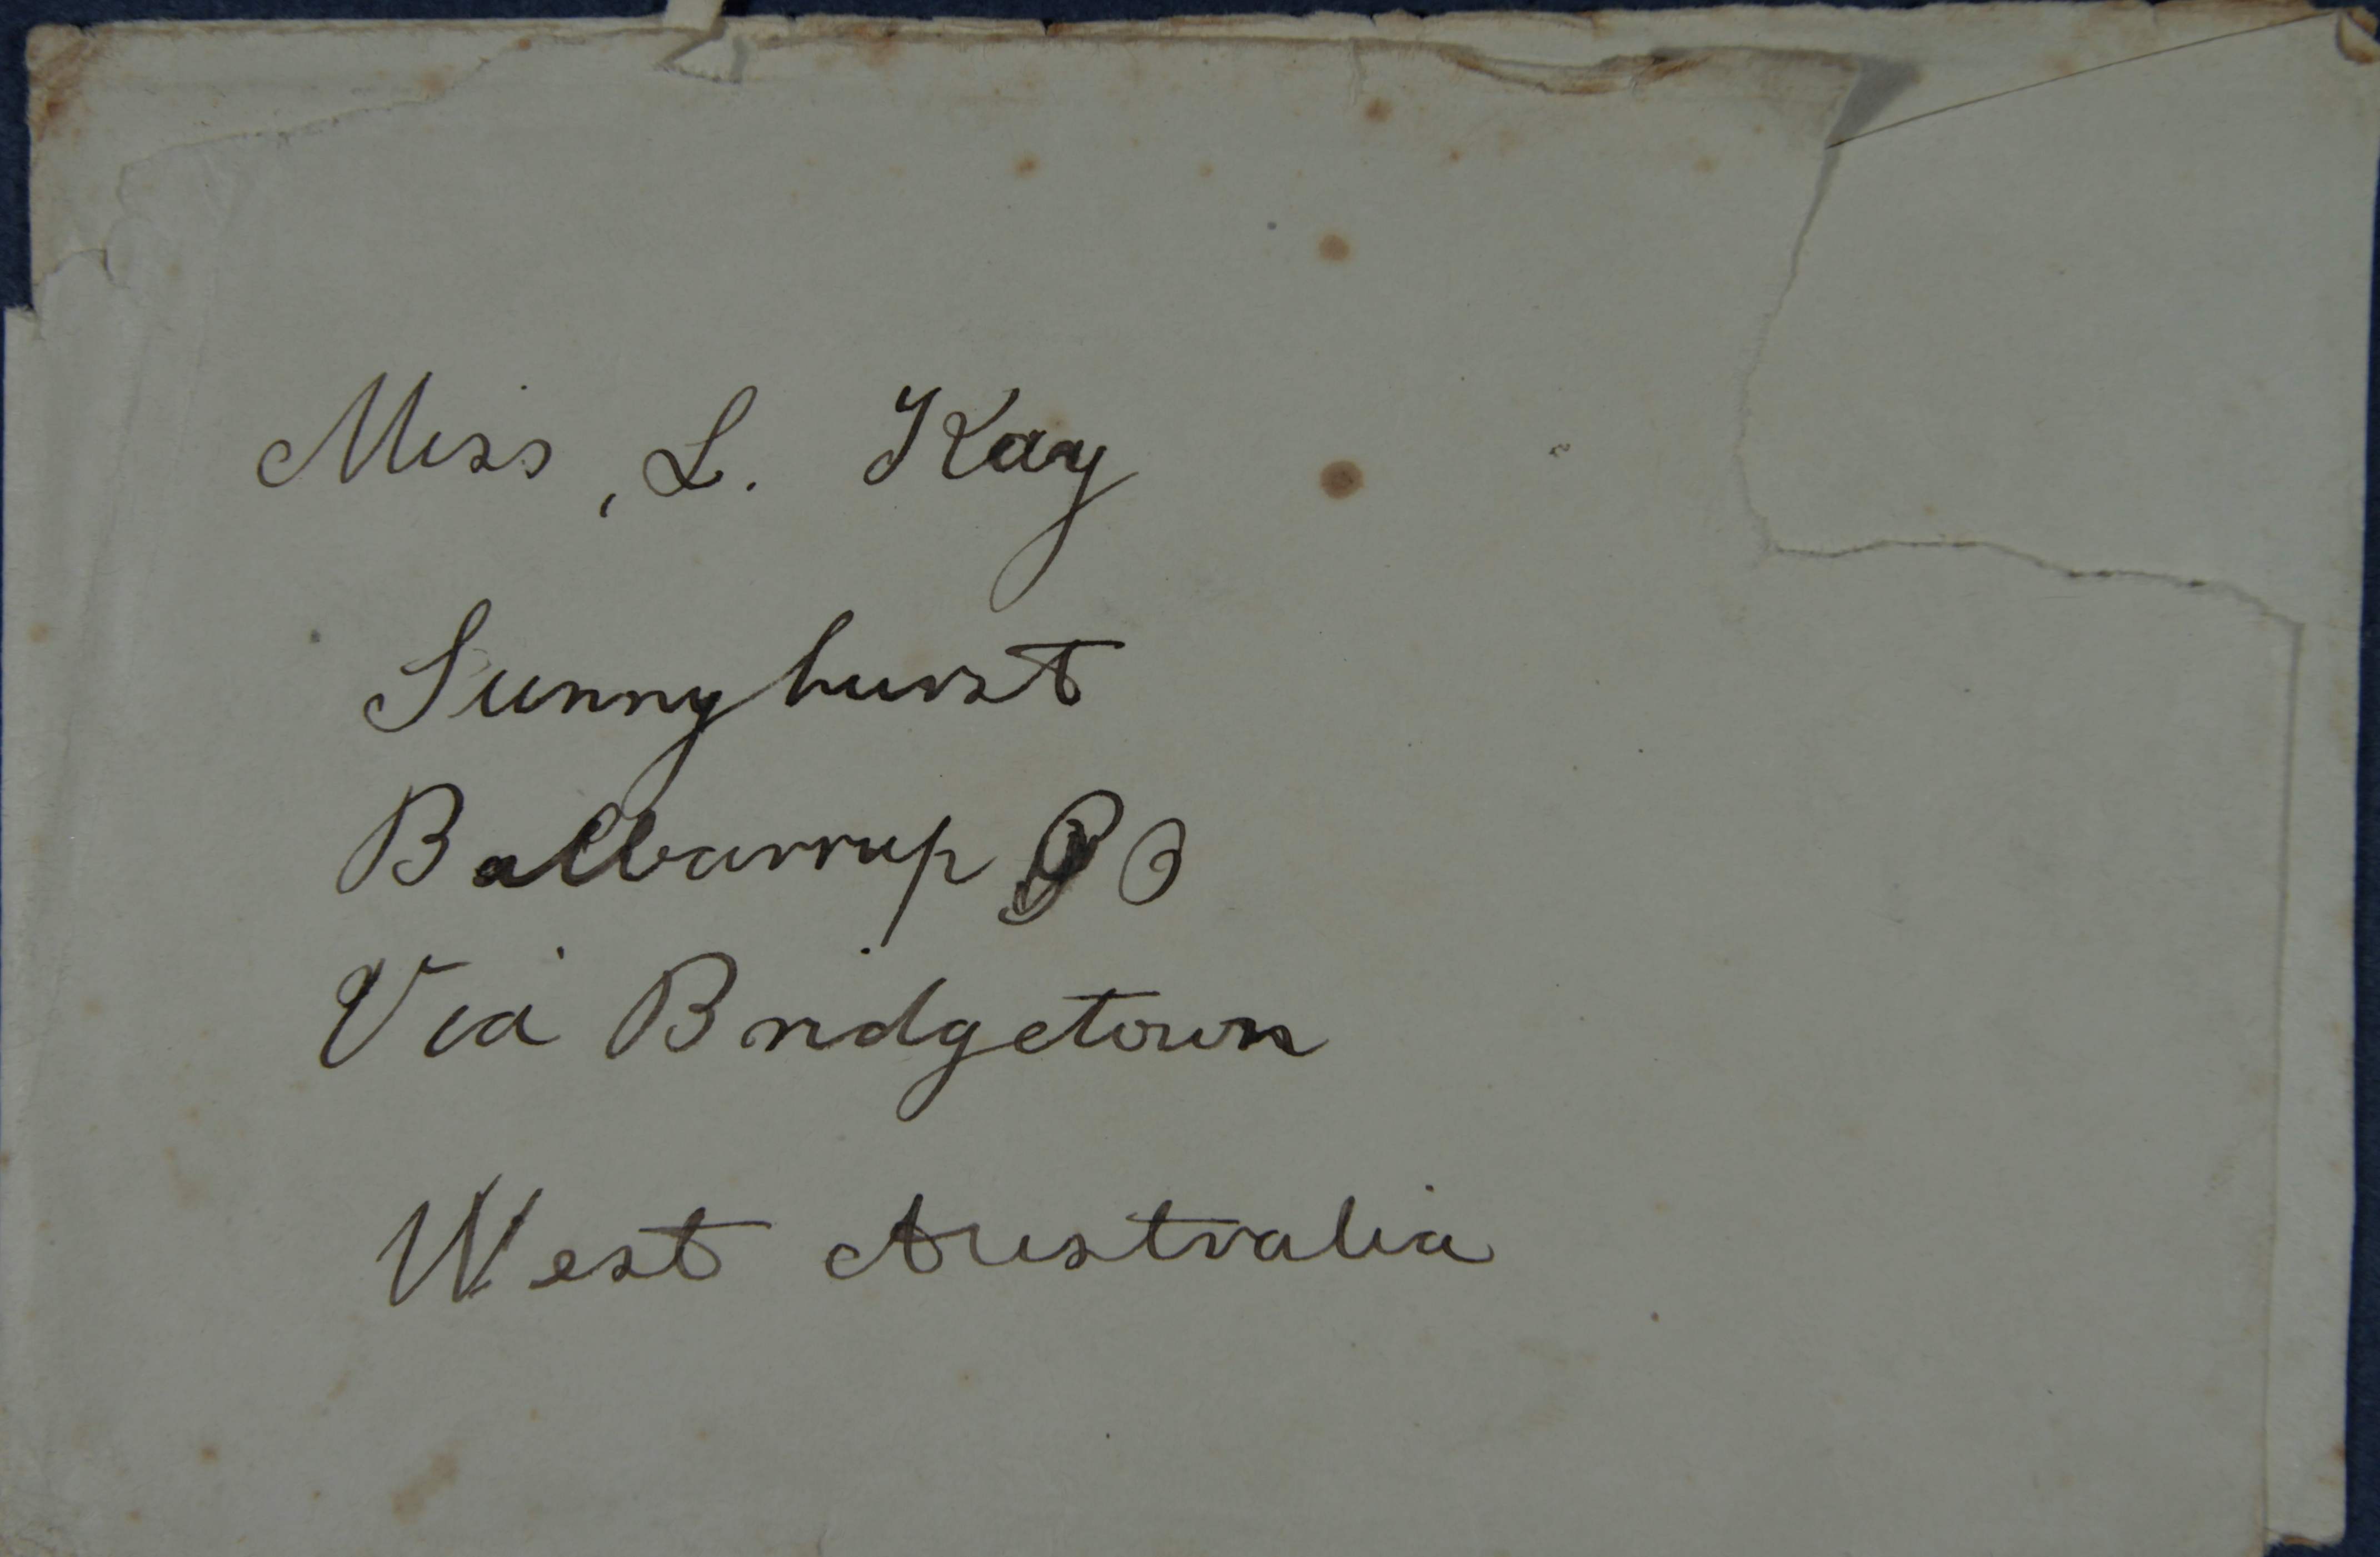 Miss, L. Kay
Sunnyhurst
Balbarrup P O
Via Bridgetown
West Australia